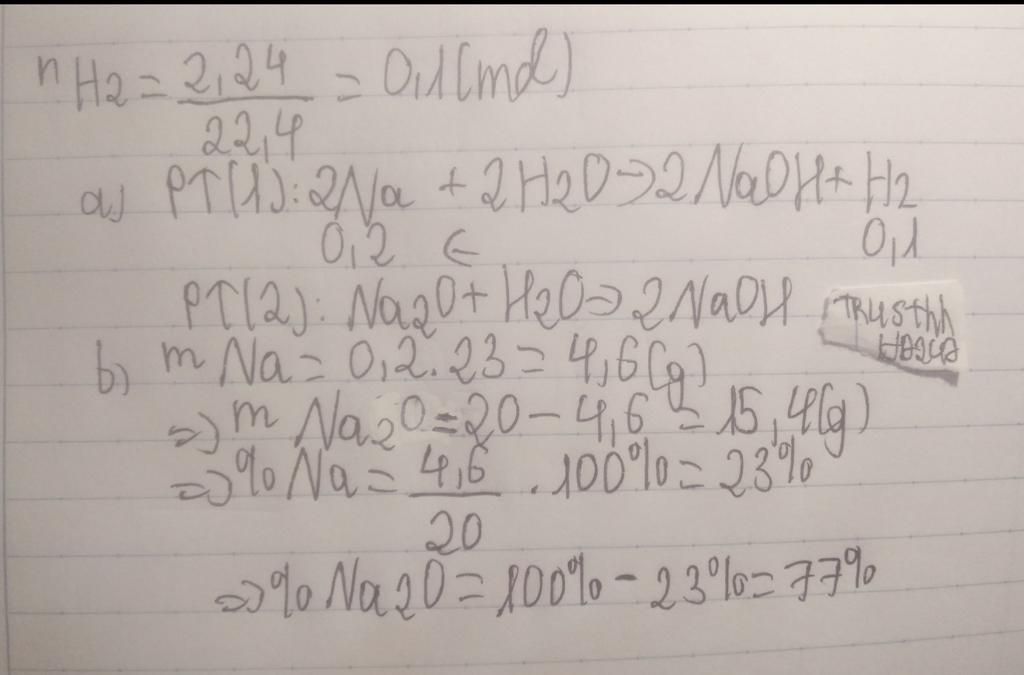 nH2 = 2,24 / 22,4 = 0,1 (mol)
a) PT(1): 2Na + 2H2O → 2NaOH + H2
0,2 ← 0,1
PT(2): Na2O + H2O → 2NaOH
b) m Na = 0,2.23 = 4,6(g)
=> m Na2O = 20 - 4,6 = 15,4(g)
=> % Na = 4,6 / 20 . 100% = 23%
=> % Na2O = 100% - 23% = 77%